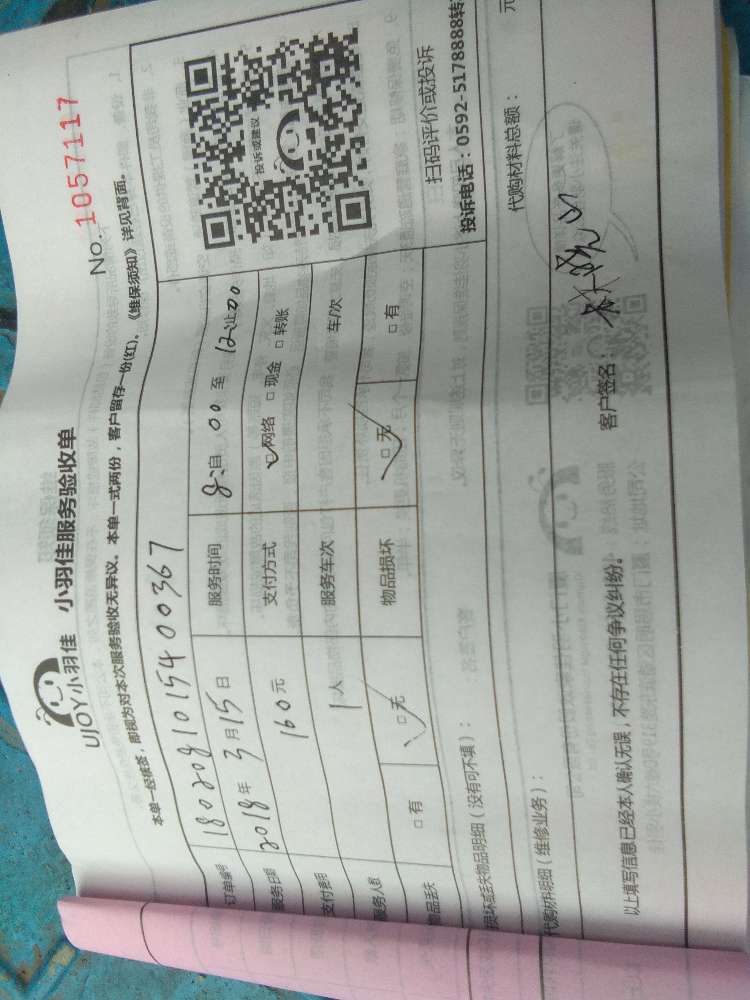 UJOY小羽佳 小羽佳服务验收单
No. 1057117
本单一经核签，即视为对本次服务验收无异议。本单一式两份，客户留存一份(红)。《维保须知》详见背面。
订单编号 180208101540 0367
服务日期 2018年3月15日 服务时间 自8:00至12:00
支付费用 160元 支付方式 网络 现金 转账
服务人数 1人 服务车次 车/次
物品丢失 有 无 物品损坏 无 有
投诉或建议
扫码评价或投诉
投诉电话：0592-5178888转
损坏或丢失物品明细（没有可不填）：
代购材料明细（维修业务）： 代购材料总额： 元
以上填写信息已经本人确认无误，不存在任何争议纠纷。 客户签名：